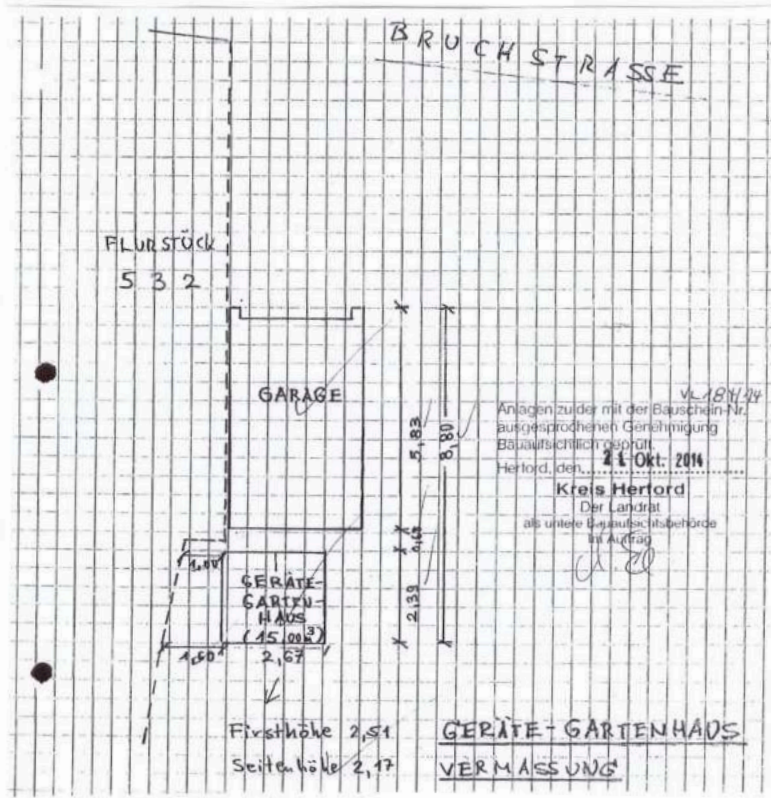 BRUCHSTRASSE
FLURSTÜCK
5 3 2
GARAGE
5,83
8,80
Anlagen zu der mit der Bauschein-Nr.
ausgesprochenen Genehmigung
Bauaufsichtlich geprüft.
Herford, den 21 Okt. 2014
Kreis Herford
Der Landrat
als untere Bauaufsichtsbehörde
Im Auftrag
1,00
GERÄTE-
GARTEN-
HAUS
(15.00 m³)
2,39
1,60
2,67
Firsthöhe 2,51
Seitenhöhe 2,17
GERÄTE-GARTENHAUS
VERMASSUNG